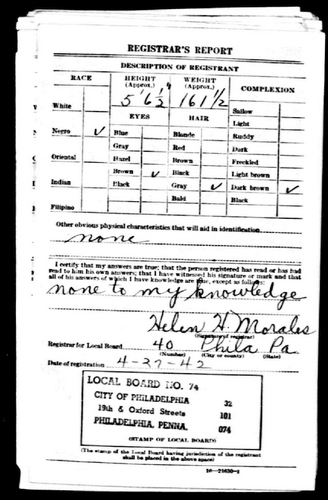 REGISTRAR'S REPORT
DESCRIPTION OF REGISTRANT
RACE
HEIGHT (Approx.)
WEIGHT (Approx.)
COMPLEXION
5' 6½"
161½
White
EYES
HAIR
Sallow
Light
Negro ✓
Blue
Blonde
Ruddy
Gray
Red
Dark
Oriental
Hazel
Brown
Freckled
Brown ✓
Black
Light brown
Indian
Black
Gray ✓
Dark brown ✓
Bald
Black
Filipino
Other obvious physical characteristics that will aid in identification
none
I certify that my answers are true; that the person registered has read or has had
read to him his own answers; that I have witnessed his signature or mark and that
all of his answers of which I have knowledge are true, except as follows:
none to my knowledge
Helen H. Morales
(Signature of registrar)
Registrar for Local Board 40 Phila Pa.
(Number) (City or county) (State)
Date of registration 4-27-42
LOCAL BOARD NO. 74
CITY OF PHILADELPHIA 32
19th & Oxford Streets 101
PHILADELPHIA, PENNA. 074
(STAMP OF LOCAL BOARD)
(The stamp of the Local Board having jurisdiction of the registrant
shall be placed in the above space)
16—21630-1